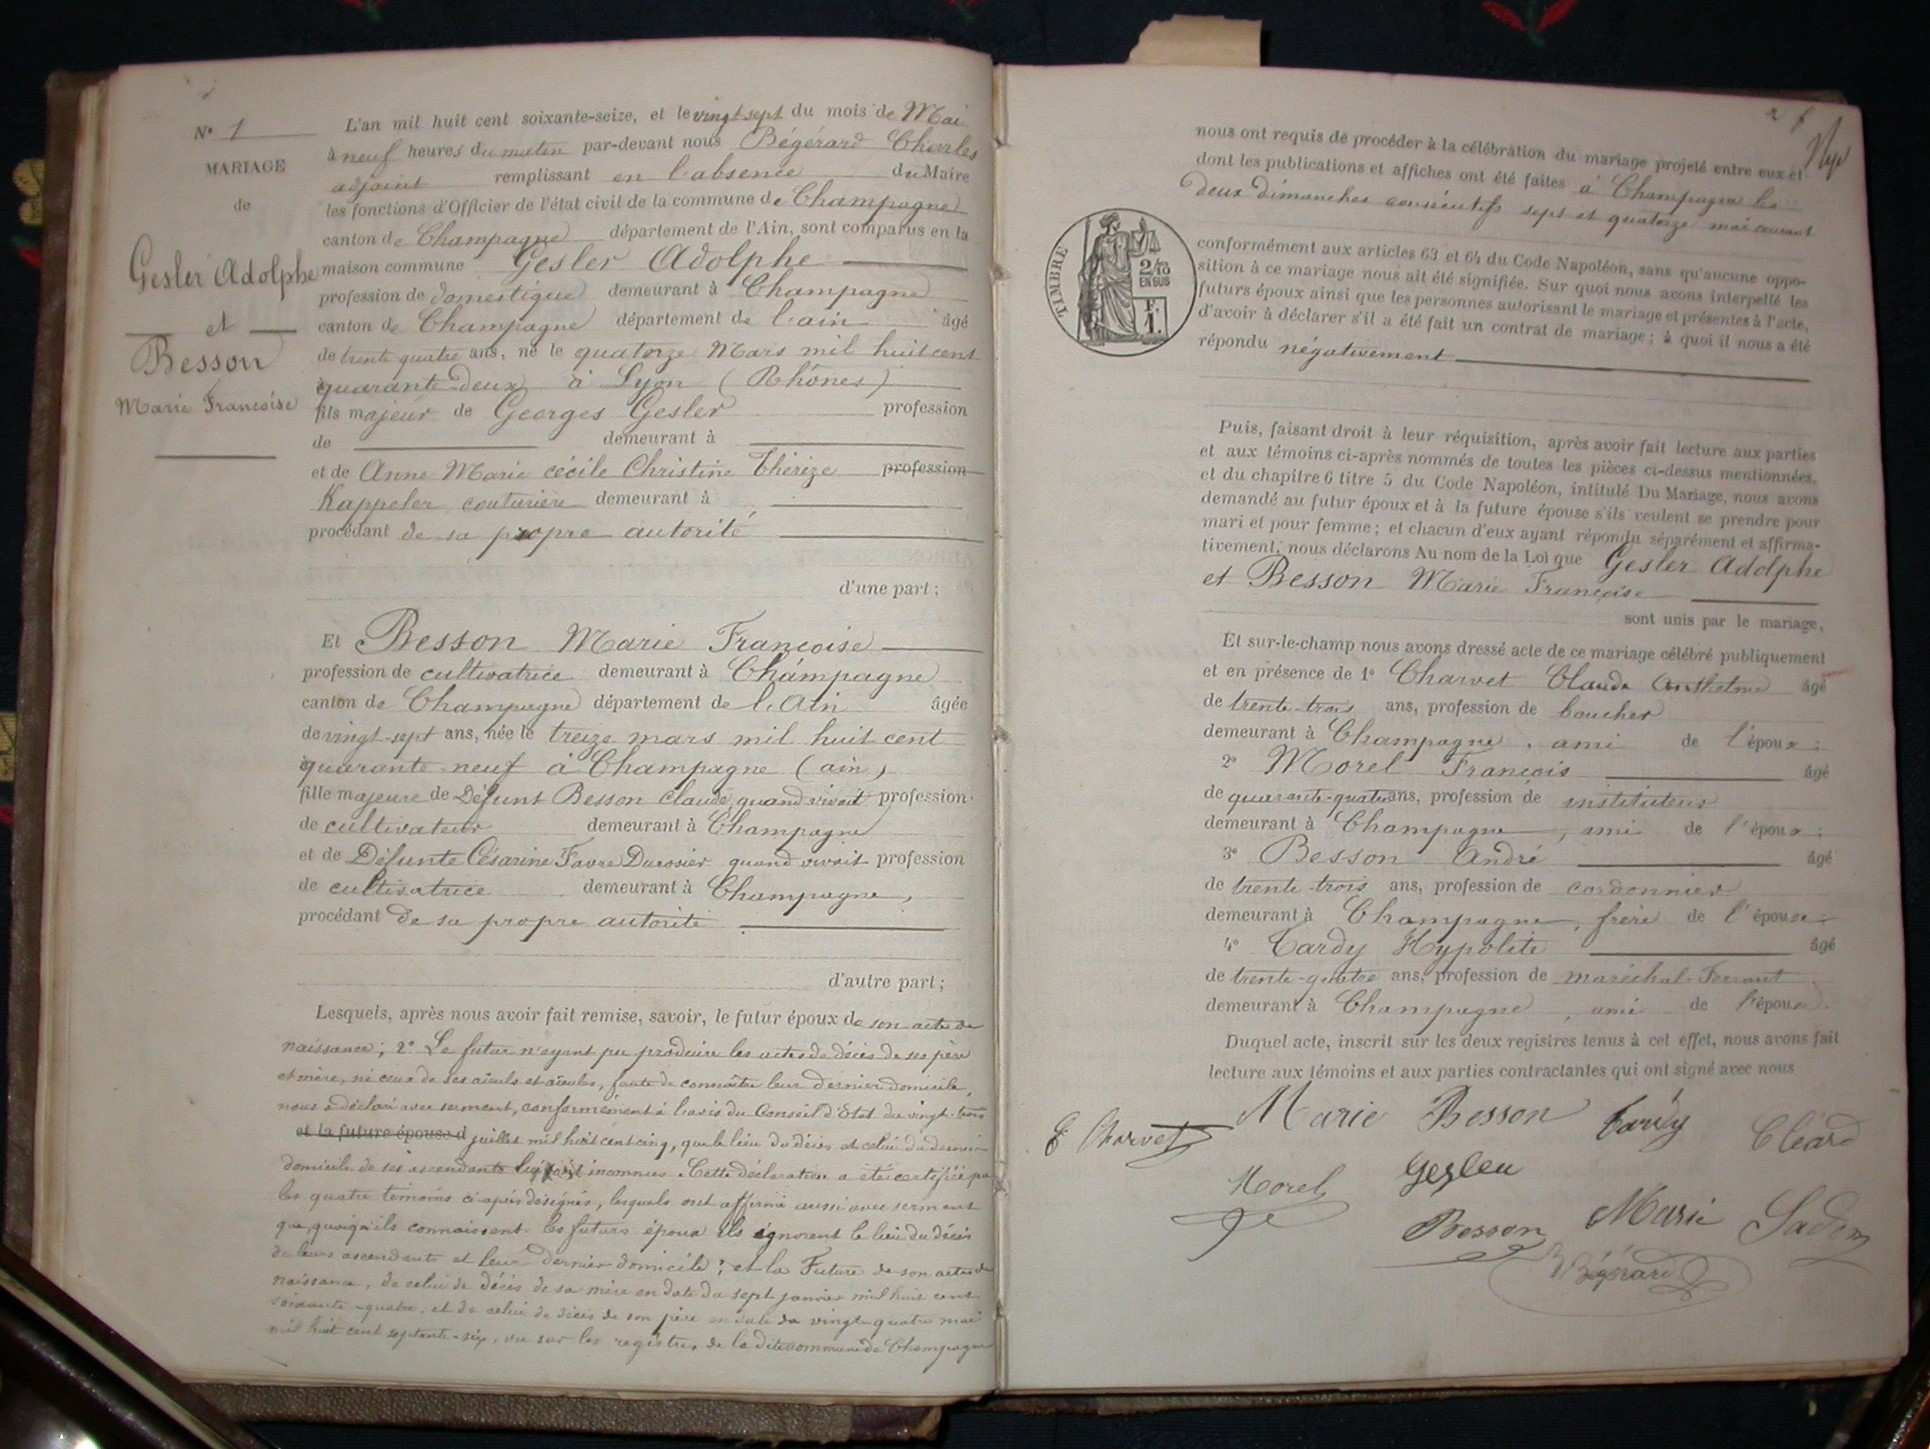 Nº 1
MARIAGE
de
Gesler Adolphe
et
Besson
Marie Francoise
L'an mil huit cent soixante-seize, et le vingt sept du mois de Mai
à neuf heures du matin par-devant nous Bégérard Charles
adjoint remplissant en l'absence du Maire
les fonctions d'Officier de l'état civil de la commune de Champagne
canton de Champagne département de l'Ain, sont comparus en la
maison commune Gesler Adolphe
profession de domestique demeurant à Champagne
canton de Champagne département de l'ain âgé
de trente quatre ans, né le quatorze Mars mil huit cent
quarante deux à Lyon (Rhônes)
fils majeur de Georges Gesler profession
de demeurant à
et de Anne Marie cécile Christine Thérèze profession
Kappeler couturière demeurant à
procédant de sa propre autorité
d'une part;
Et Besson Marie Francoise
profession de cultivatrice demeurant à Champagne
canton de Champagne département de l'Ain âgée
de vingt-sept ans, née le treize mars mil huit cent
quarante neuf à Champagne (ain)
fille majeure de Défunt Besson Claude, quand vivait profession
de cultivateur demeurant à Champagne
et de Défunte Césarine Favre Durosier quand vivait profession
de cultivatrice demeurant à Champagne,
procédant de sa propre autorité
d'autre part;
Lesquels, après nous avoir fait remise, savoir, le futur époux de son acte de
naissance; 2º Le futur n'ayant pu produire les actes de décès de ses père
et mère, ni ceux de ses aïeuls et aïeules, faute de connaître leur dernier domicile,
nous a déclaré avec serment, conformément à l'avis du Conseil d'Etat du vingt-trois
et la future épouse d juillet mil huit cent cinq, que le lieu du décès et celui du dernier
domicile de ses ascendants lui sont inconnus. Cette déclaration a été certifiée par
les quatre témoins ci-après désignés, lesquels ont affirmé aussi avec serment
que, quoiqu'ils connaissent les futurs époux ils ignorent le lieu du décès
de leurs ascendants et leur dernier domicile; et la Future de son acte de
naissance, de celui de décès de sa mère en date du sept janvier mil huit cent
soixante-quatre, et de celui de décès de son père en date du vingt-quatre mai
mil huit cent septante-six, vu sur les registres de la dite commune de Champagne
2
nous ont requis de procéder à la célébration du mariage projeté entre eux et
dont les publications et affiches ont été faites à Champagne les
deux dimanches consécutifs sept et quatorze mai courant
TIMBRE
2/10
EN SUS
F.
1.
conformément aux articles 63 et 64 du Code Napoléon, sans qu'aucune oppo-
sition à ce mariage nous ait été signifiée. Sur quoi nous avons interpellé les
futurs époux ainsi que les personnes autorisant le mariage et présentes à l'acte,
d'avoir à déclarer s'il a été fait un contrat de mariage; à quoi il nous a été
répondu négativement
Puis, faisant droit à leur réquisition, après avoir fait lecture aux parties
et aux témoins ci-après nommés de toutes les pièces ci-dessus mentionnées,
et du chapitre 6 titre 5 du Code Napoléon, intitulé Du Mariage, nous avons
demandé au futur époux et à la future épouse s'ils veulent se prendre pour
mari et pour femme; et chacun d'eux ayant répondu séparément et affirma-
tivement, nous déclarons Au nom de la Loi que Gesler Adolphe
et Besson Marie Françoise
sont unis par le mariage,
Et sur-le-champ nous avons dressé acte de ce mariage célébré publiquement
et en présence de 1º Charvet Claude Anthelme âgé
de trente-trois ans, profession de boucher
demeurant à Champagne, ami de l'époux;
2º Morel François âgé
de quarante-quatre ans, profession de instituteur
demeurant à Champagne, ami de l'époux;
3º Besson André âgé
de trente-trois ans, profession de cordonnier
demeurant à Champagne, frère de l'épouse;
4º Tardy Hypolite âgé
de trente-quatre ans, profession de maréchal-Ferrant
demeurant à Champagne, ami de l'épouse.
Duquel acte, inscrit sur les deux registres tenus à cet effet, nous avons fait
lecture aux témoins et aux parties contractantes qui ont signé avec nous
Marie Besson Tardy Cléard
Charvet
Morel Gesleu
Besson Marie Sadon
Bégérard